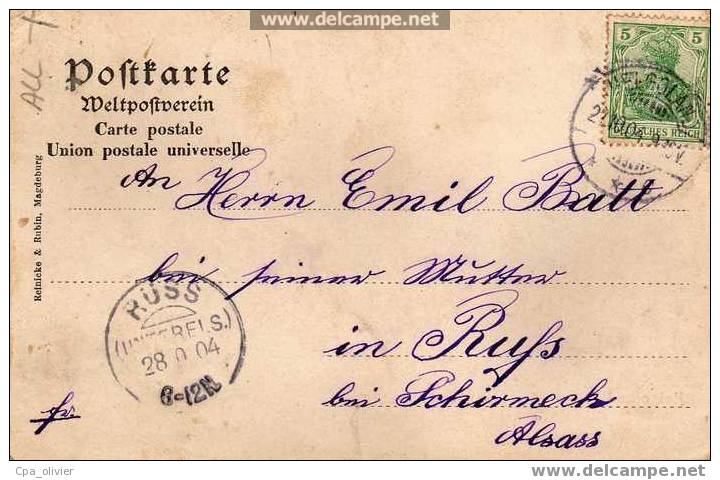 www.delcampe.net
All
Postkarte
Weltpostverein
Carte postale
Union postale universelle
5 5
DEUTSCHES REICH
An Herrn Emil Batt
bei seiner Mutter
in Russ
bei Schirmeck
Alsass
Reinicke & Rubin, Magdeburg
RUSS
(UNTERELS.)
28 04
8-12N
fr.
Cpa_olivier
www.delcampe.net